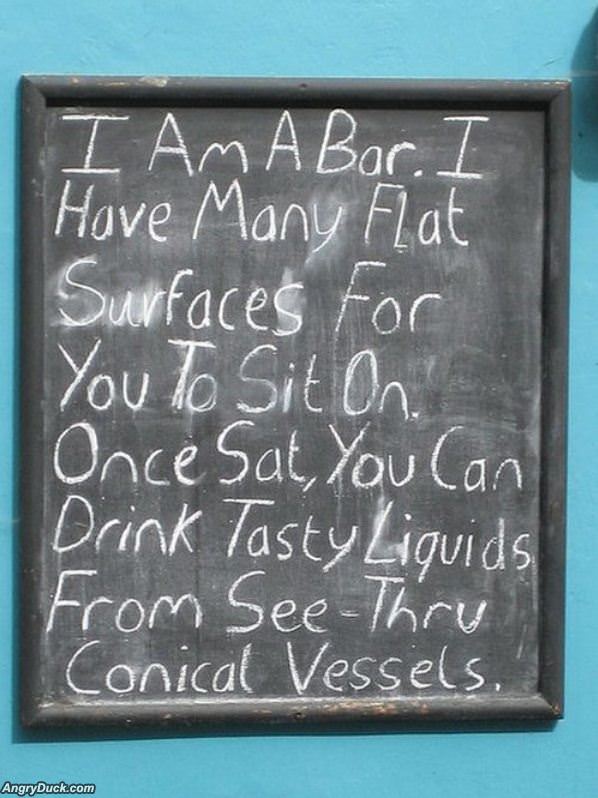 I Am A Bar. I
Have Many Flat
Surfaces For
You To Sit On.
Once Sat, You Can
Drink Tasty Liquids
From See-Thru
Conical Vessels.
AngryDuck.com